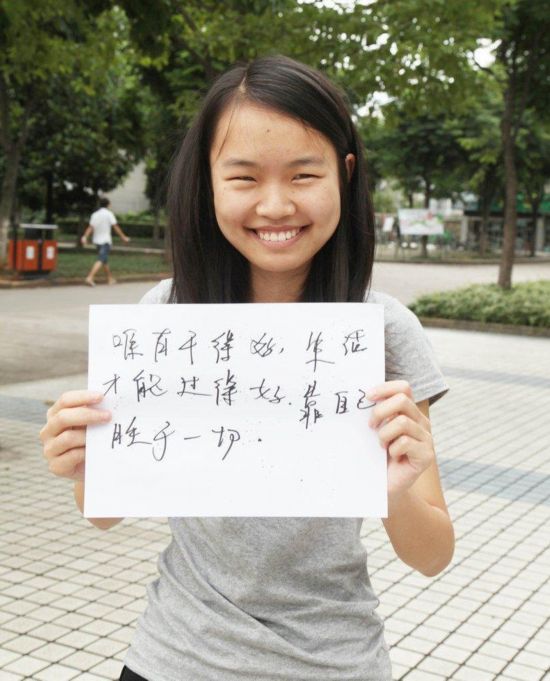 唯有干得好，生活
才能过得好.靠自己
胜于一切.